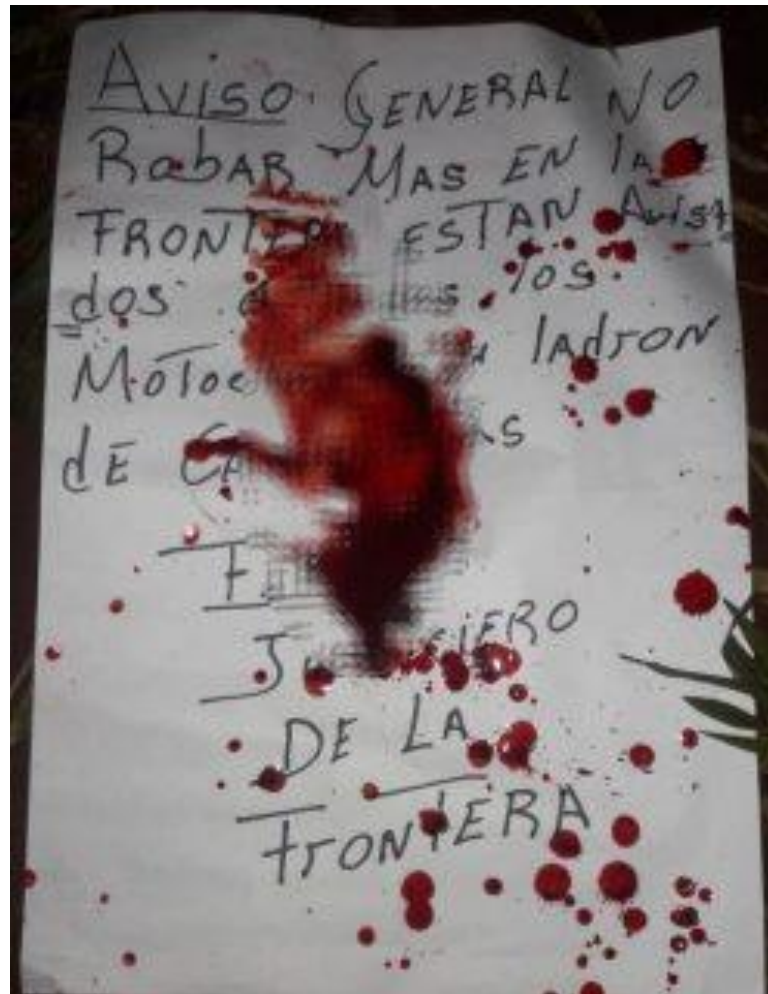 Aviso. GENERAL NO
RobAR MAS EN lA
FRONTERA ESTAN AvisA
dos los
ladron
dE
JusticiERO
DE LA
FronTERA